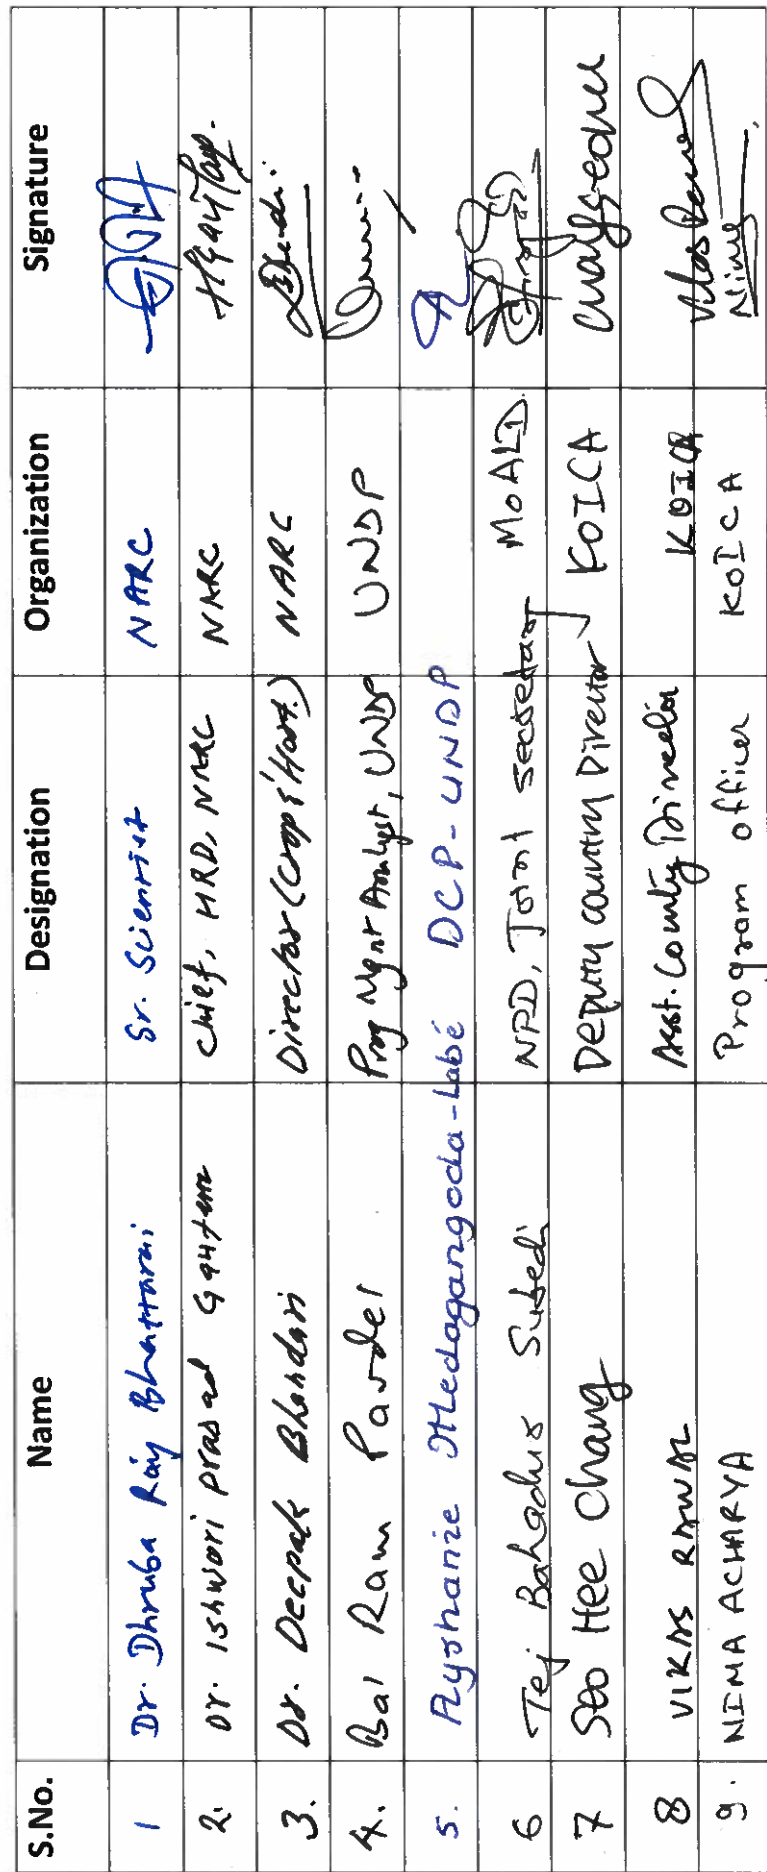 S.No. Name Designation Organization Signature
1 Dr. Dhruba Raj Bhattarai Sr. Scientist NARC
2. Dr. Ishwori Prasad Gautam Chief, HRD, NARC NARC
3. Dr. Deepak Bhandari Director (Crops & Hort.) NARC
4. Bal Ram Paudel Prog Mgnt Analyst, UNDP UNDP
5. Ayshanie Medagangoda-Labé DCP-UNDP
6 Tej Bahadur Subedi NPD, Joint Secretary MoALD
7 Seo Hee Chang Deputy Country Director KOICA
8 VIKAS RAWAL Asst. Country Director KOICA
9. NIMA ACHARYA Program officer KOICA Nima